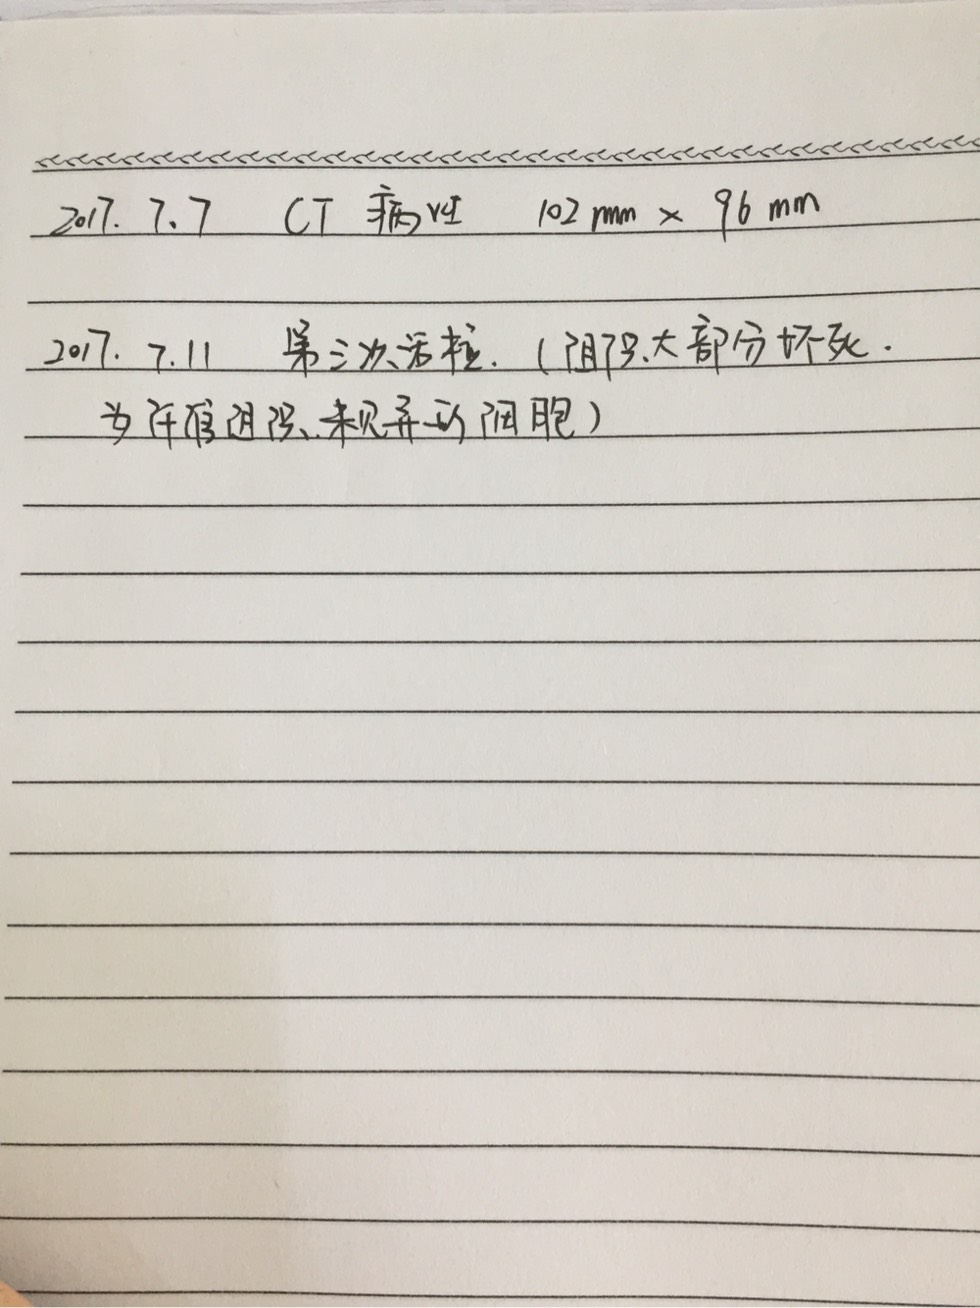 2017. 7.7 CT 病灶 102 mm × 96 mm
2017. 7.11 第三次活检.(阴沉、大部分坏死.
为纤维阴沉、未见异形细胞)